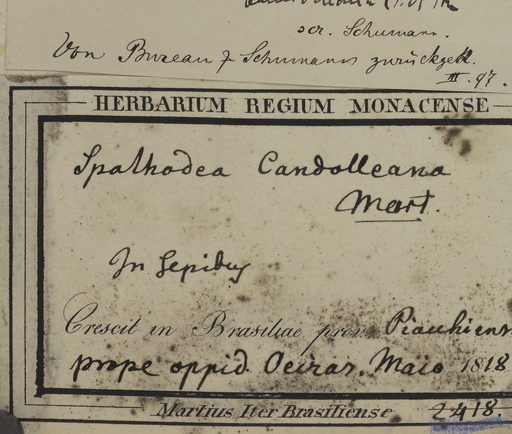 scr. Schumann.
Von Bureau & Schumann zurückgek.
III. 97.
HERBARIUM REGIUM MONACENSE
Spathodea Candolleana
Mart.
In Sepibus
Crescit in Brasiliae prov. Piauhiens
prope oppid. Oeiras. Maio 1818
Martius Iter Brasiliense 2418.